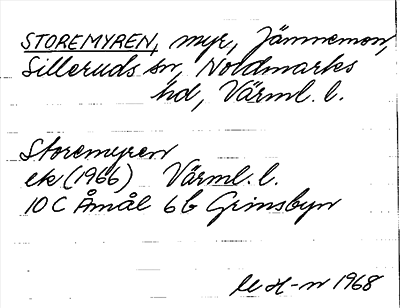 STOREMYREN, myr, Jämnemon,
Silleruds sn, Nordmarks
hd, Värml. l.
Storemyren
ek (1966) Värml. l.
10 C Åmål 6 b Grinsbyn
1968